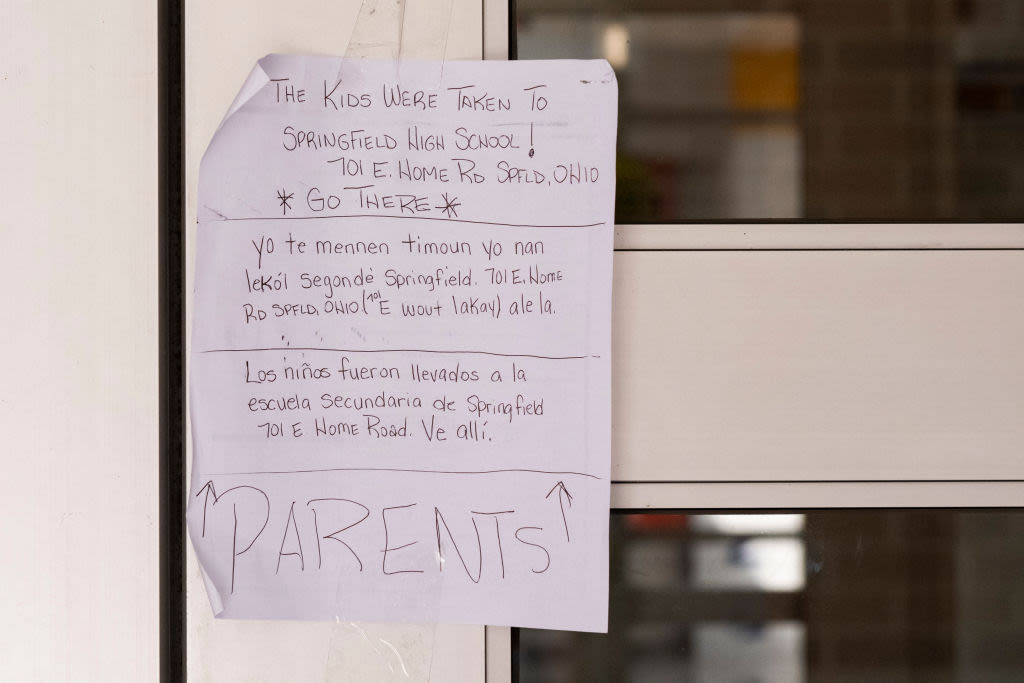 THE KIDS WERE TAKEN TO
SPRINGFIELD HIGH SCHOOL!
701 E. HOME RD SPFLD, OHIO
* GO THERE *
yo te mennen timoun yo nan
lekól segondè Springfield. 701 E. Home
RD SPFLD, OHIO (701 E wout lakay) ale la.
Los niños fueron llevados a la
escuela secundaria de Springfield
701 E Home Road. Ve allí.
↑ PARENTS ↑